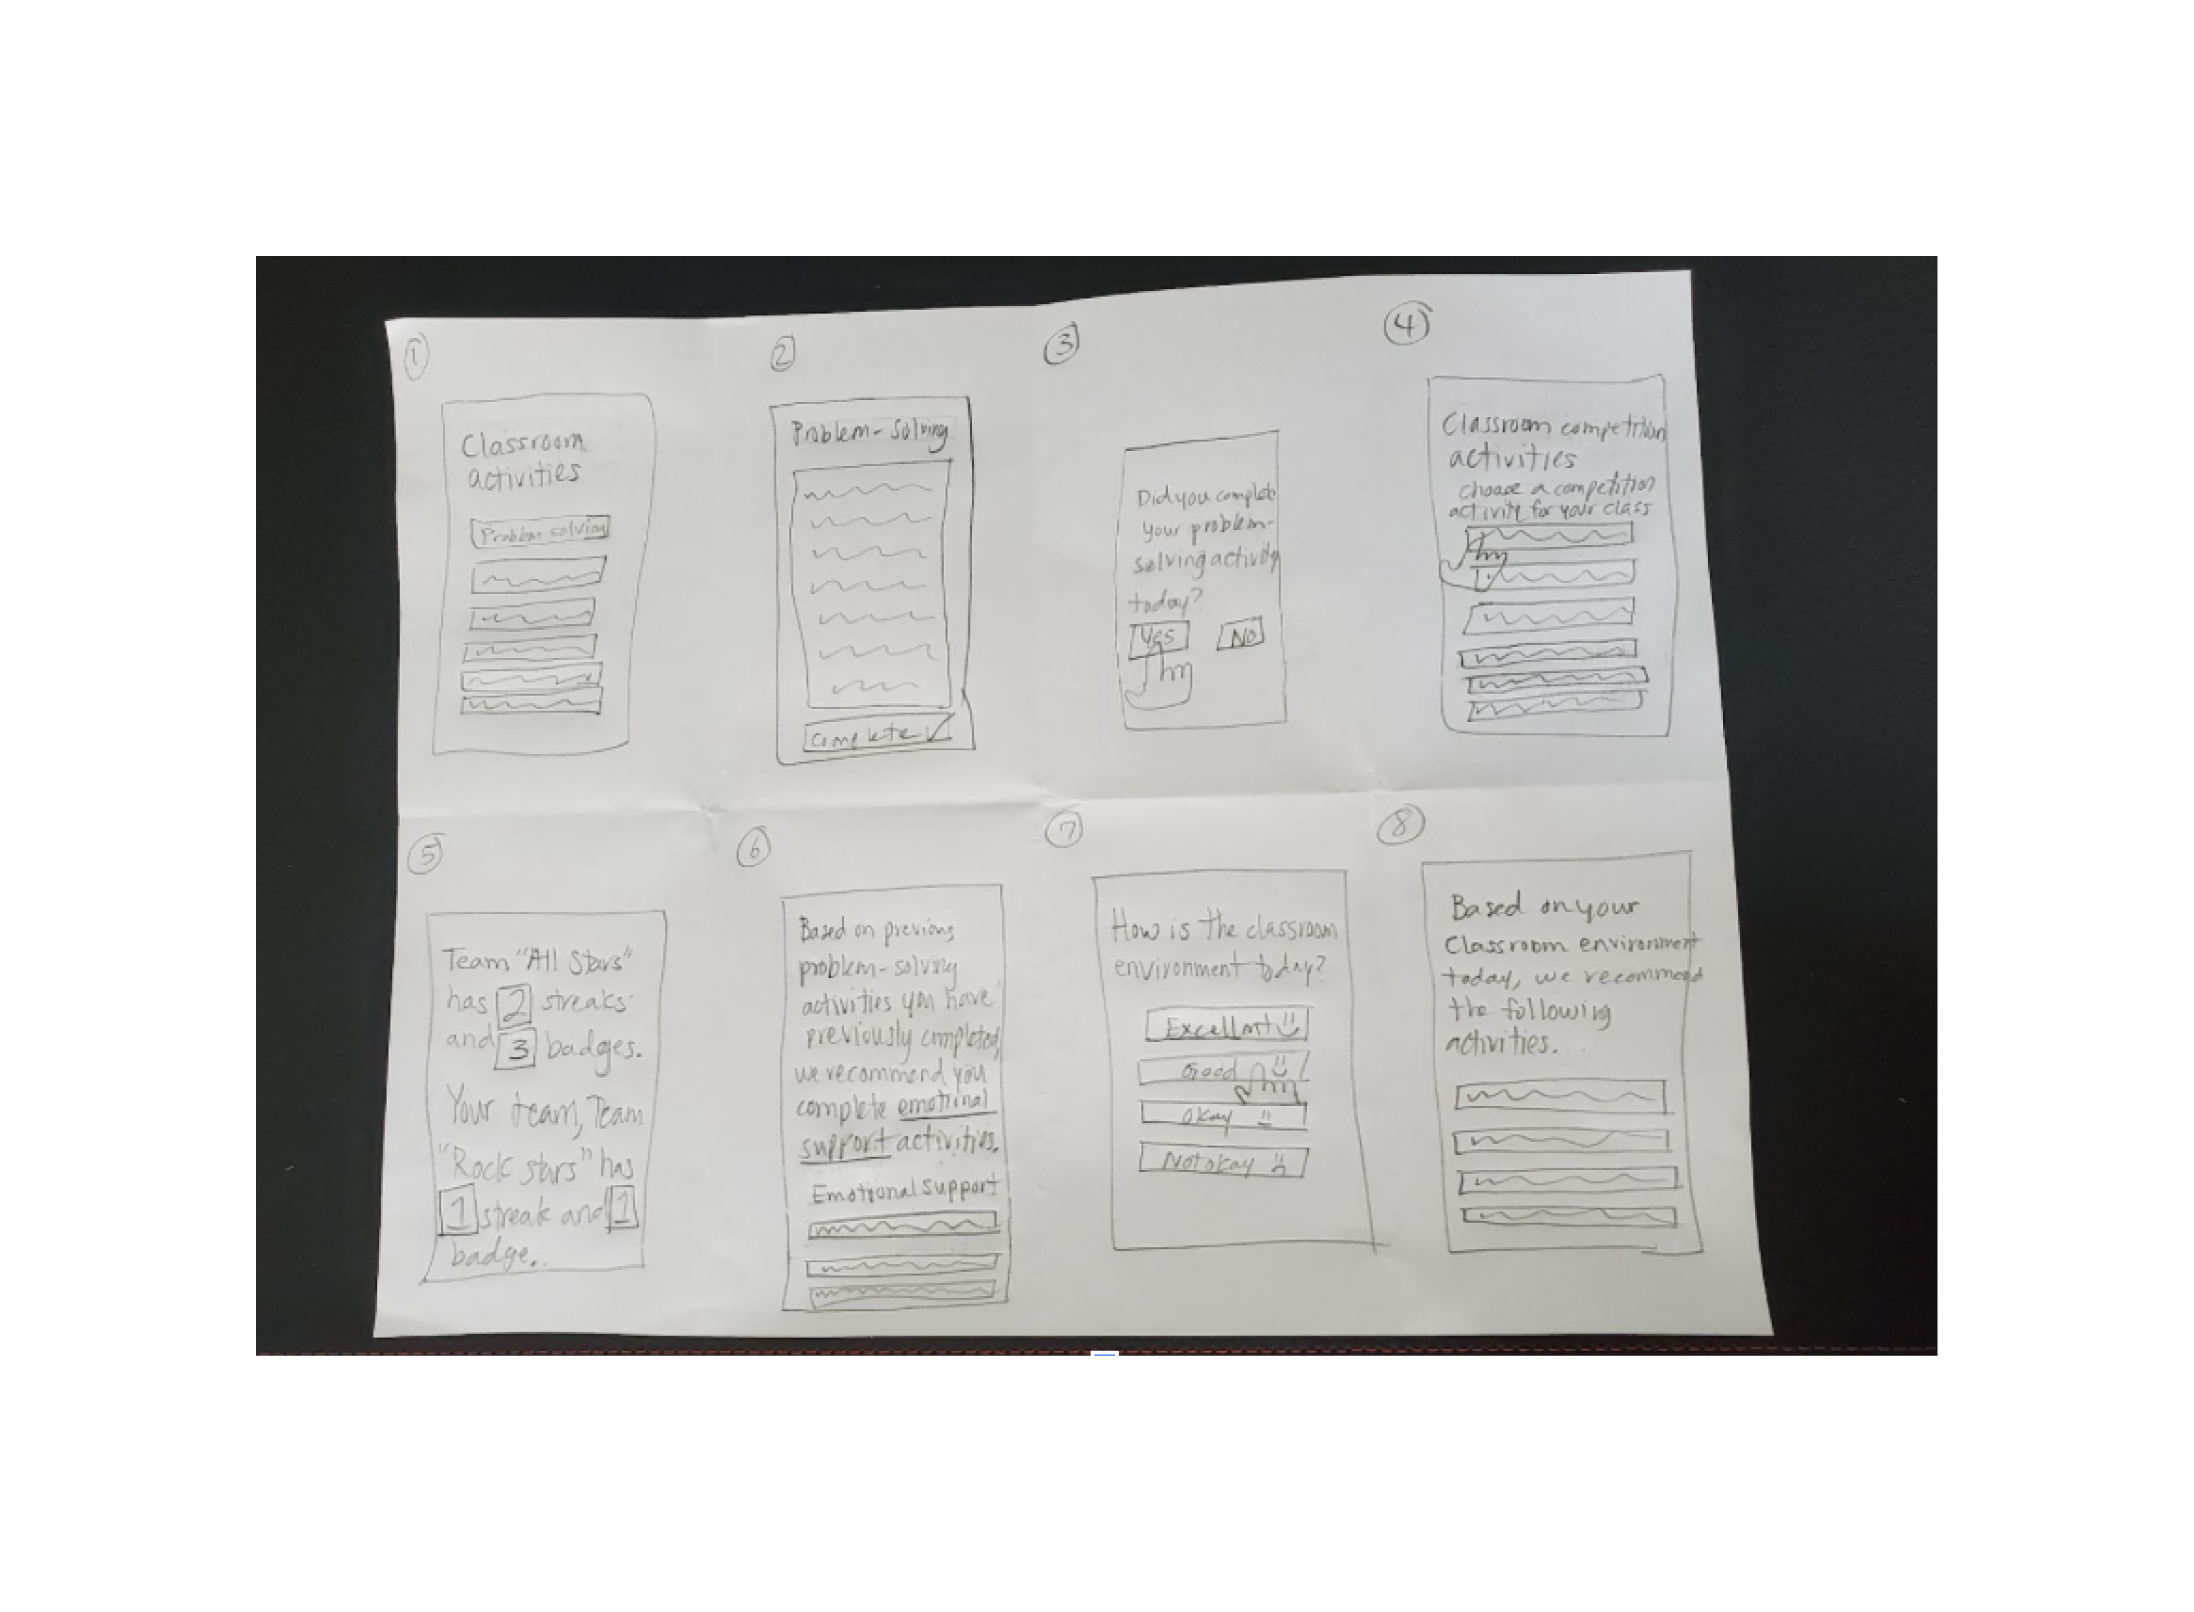 1
Classroom
activities
Problem solving
2
Problem-Solving
Complete ✓
3
Did you complete
your problem-
solving activity
today?
Yes No
4
Classroom competition
activities
choose a competition
activity for your class
5
Team "All Stars"
has 2 streaks
and 3 badges.
Your team, Team
"Rock stars" has
1 streak and 1
badge.
6
Based on previous
problem-solving
activities you have
previously completed,
we recommend you
complete emotional
support activities.
Emotional support
7
How is the classroom
environment today?
Excellent
Good
Okay
Not okay
8
Based on your
Classroom environment
today, we recommend
the following
activities.